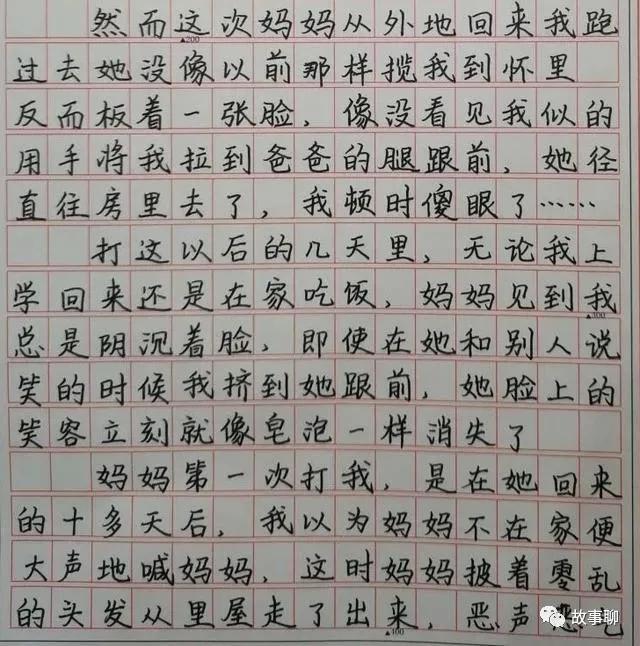 然而这次妈妈从外地回来我跑
▲200
过去她没像以前那样揽我到怀里
反而板着一张脸，像没看见我似的
用手将我拉到爸爸的腿跟前，她径
直往房里去了，我顿时傻眼了……
打这以后的几天里，无论我上
学回来还是在家吃饭，妈妈见到我
▲300
总是阴沉着脸，即使在她和别人说
笑的时候我挤到她跟前，她脸上的
笑容立刻就像皂泡一样消失了
妈妈第一次打我，是在她回来
的十多天后，我以为妈妈不在家便
大声地喊妈妈，这时妈妈披着零乱
的头发从里屋走了出来，恶声恶气
▲400
故事聊